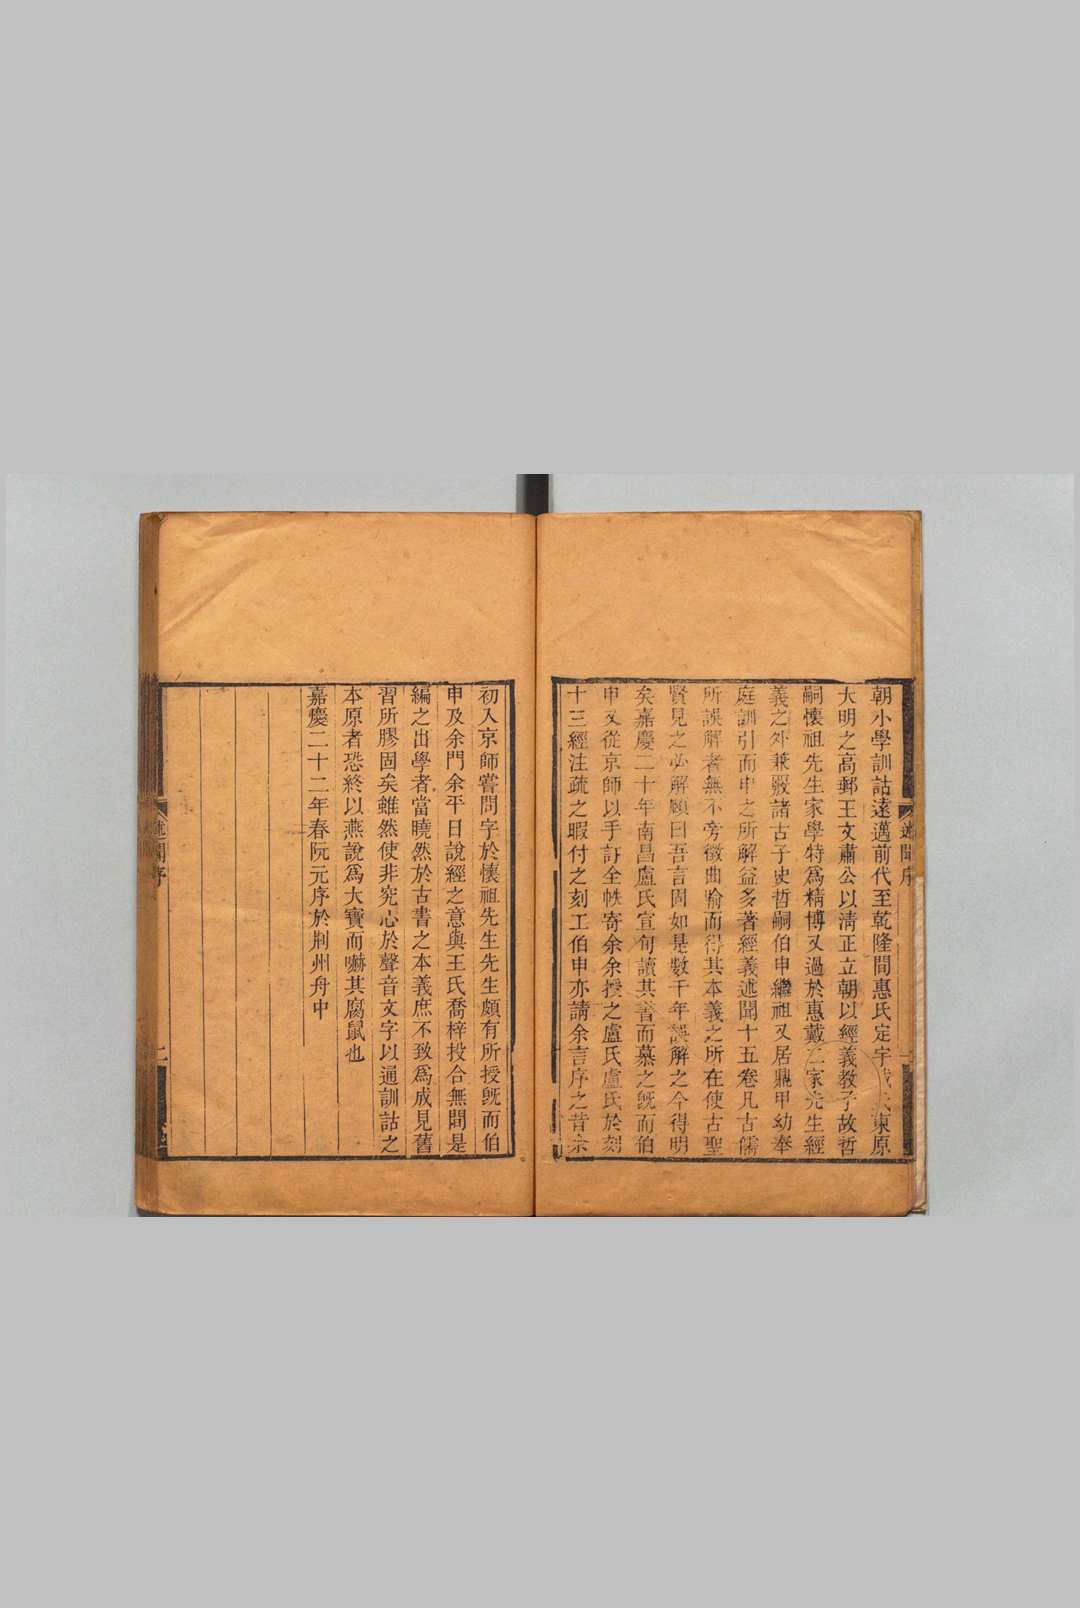 朝小學訓詁遠邁前代至乾隆間惠氏定宇戴氏東原
大明之高郵王文肅公以清正立朝以經義教子故哲
嗣懷祖先生家學特爲精博又過於惠戴二家先生經
義之外兼覈諸古子史哲嗣伯申繼祖又居鼎甲幼奉
庭訓引而申之所解益多著經義述聞十五卷凡古儒
所誤解者無不旁徵曲喻而得其本義之所在使古聖
賢見之必解頤曰吾言固如是數千年誤解之今得明
矣嘉慶二十年南昌盧氏宣旬讀其書而慕之旣而伯
申又從京師以手訂全帙寄余余授之盧氏盧氏於刻
十三經注疏之暇付之刻工伯申亦請余言序之昔余
初入京師嘗問字於懷祖先生先生頗有所授旣而伯
申及余門余平日說經之意與王氏喬梓投合無間是
編之出學者當曉然於古書之本義庶不致爲成見舊
習所膠固矣雖然使非究心於聲音文字以通訓詁之
本原者恐終以燕說爲大寶而嚇其腐鼠也
嘉慶二十二年春阮元序於荆州舟中
述聞序
二